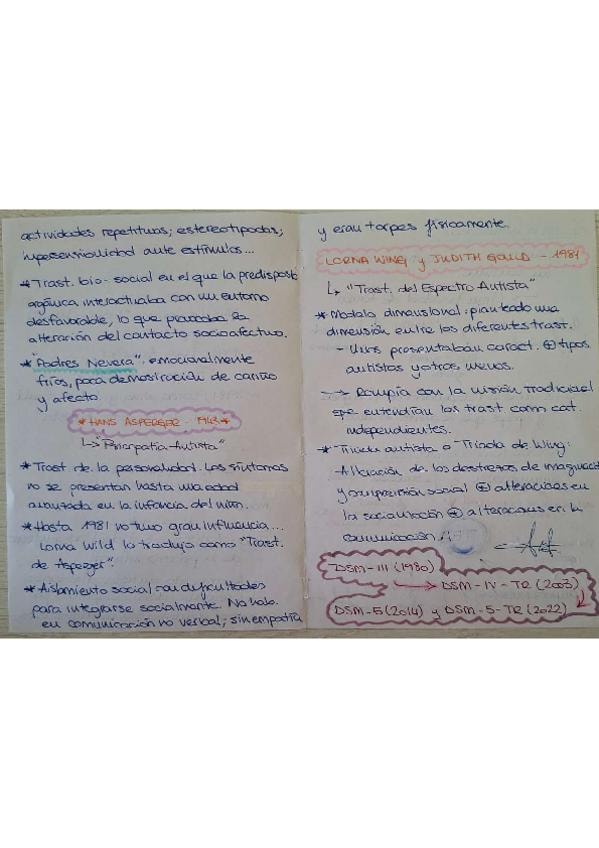 actividades repetitivas; estereotipadas;
hipersensibilidad ante estímulos...
* Trast. bio-social en el que la predisposic
orgánica interactuaba con un entorno
desfavorable, lo que provocaba la
alteración del contacto socioafectivo.
* "Padres Nevera": emocionalmente
fríos, poca demostración de cariño
y afecto.
* HANS ASPERGER - 1943 *
↳ "Psicopatía Autista"
* Trast de la personalidad. Los síntomas
no se presentan hasta una edad
avanzada en la infancia del niñx.
* Hasta 1981 no tuvo gran influencia...
Lorna Wild lo tradujo como "Trast.
de Asperger"
* Aislamiento social con dificultades
para integrarse socialmente. No hab.
en comunicación no verbal; sin empatía
y eran torpes físicamente.
LORNA WING y JUDITH GOULD - 1981
↳ "Trast. del Espectro Autista"
* Modelo dimensional: planteado una
dimensión entre los diferentes trast.
- Unxs presentaban caract. ⊕ tipos
autistas y otros menos.
→ Rompía con la visión tradicional
que entendían los trast como cat.
independientes.
* Triada autista o Triada de Wing:
- Alteración de las destrezas de imaginació
y comprensión social ⊕ alteraciones en
la socialización ⊕ alteraciones en la
comunicación.
DSM-III (1980)
→ DSM-IV-TR (2003)
DSM-5 (2014) y DSM-5-TR (2022)